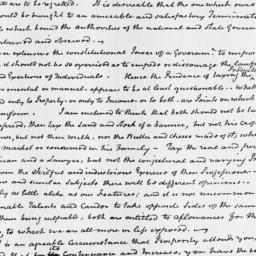 are to be regretted. It is desireable that the one which owes
could be brought to an amicable and satisfactory Termination
which bound the authorities of the national and State Govern
and observed.
the constitutional Power of a Governmt. to impose
it should not be so exercised as to impede or discourage the lawful
and Exertions of Individuals. Hence the Prudence of laying the
mental or manual, appears to be at least questionable.
only to Property, or only to Income, or to both, are Points on which
uniform. I am inclined to think that both should not be
then lay the Land and Stock of a farmer, but not his
but not their milk, nor the Butter and cheese made of it, wh
market or consumed in his Family. Tax the real and per
and a Lawyer, but not the conjectural and varying
the skilful and industrious Exercise of their Professions.
and similar Subjects there will be different opinions.
as little alike as our Features; and it is not uncommon
Talents and Candor to take opposite Sides of the same
them being culpable, both are entitled to allowances for th
to which we are all more or less exposed.
is an agreable Circumstance that Property affords you
its Continuance and Increase, you have the b